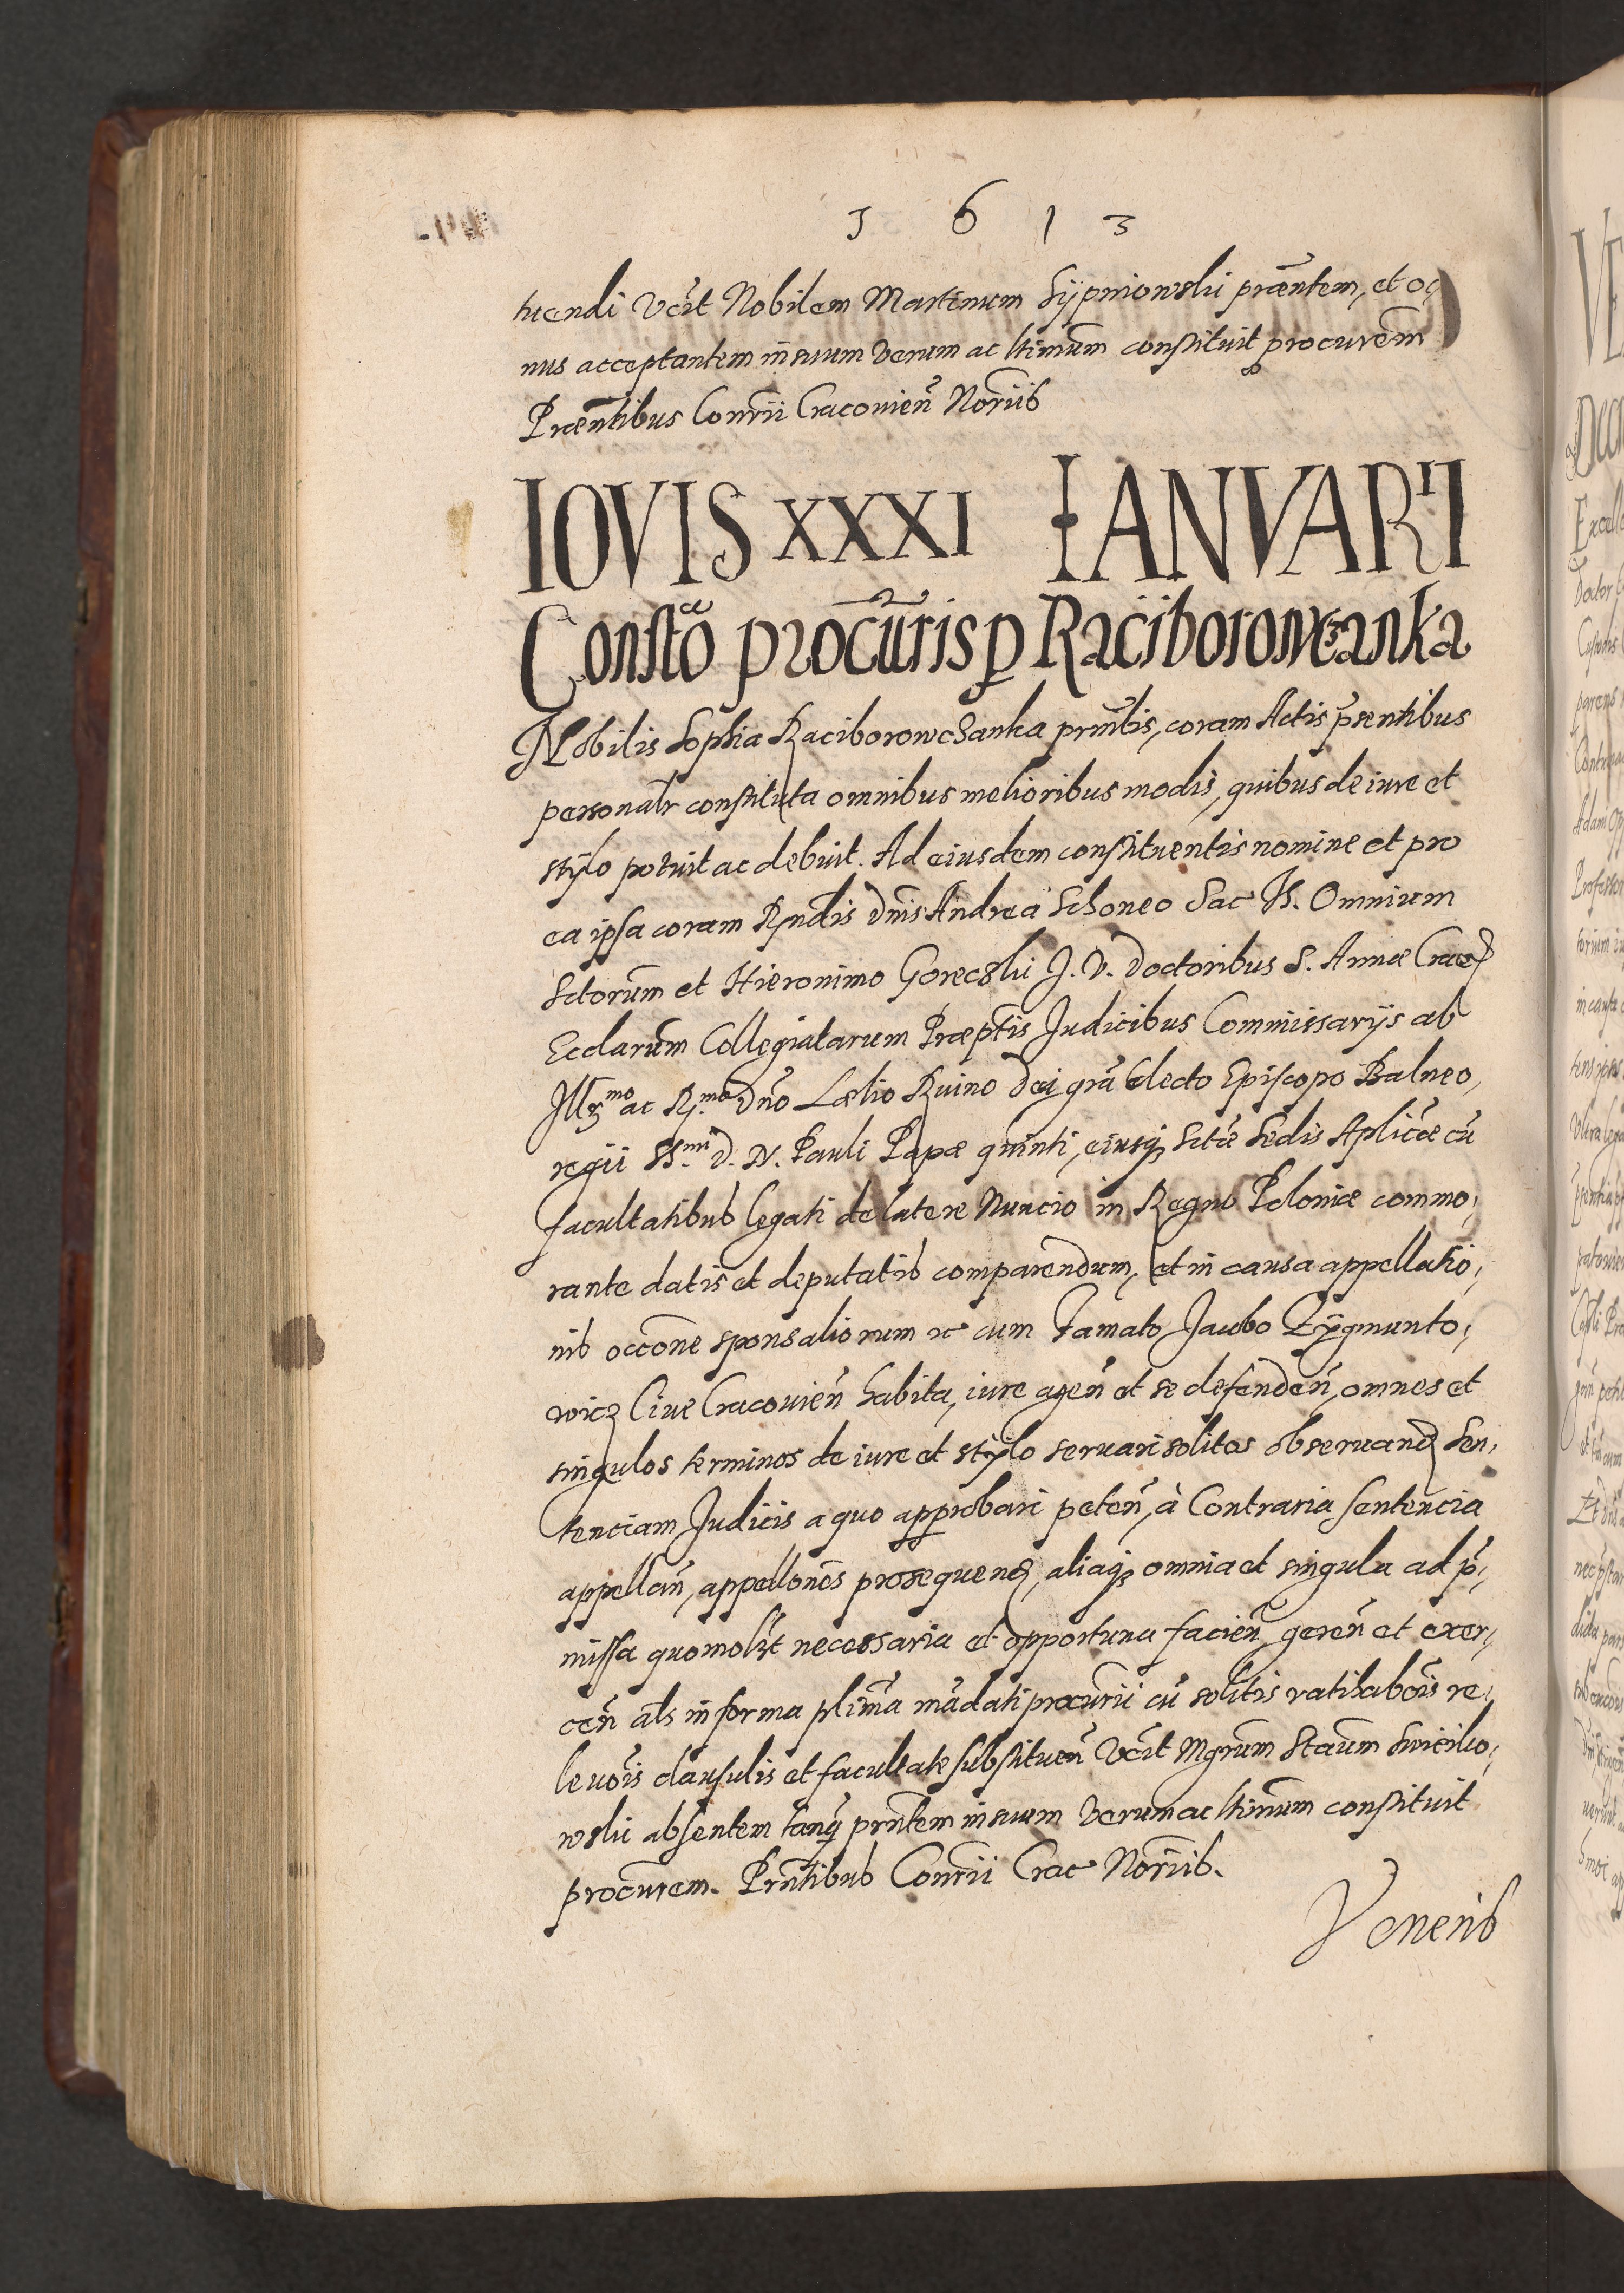 1 6 1 3
tuendi Vc̃it Nobilem Martinum Sypniowski præñtem, et o,
nus acceptantem in suum verum ac ltimũm constituit procurẽm
Præeñtibus Conr̃ii Cracovieñ Nor̃iis
IOVIS XXXI IANVARII
Constõ procur̃is p Raciborowczanka
Nobilis Sophia Raciborowczanka prin̄lis, coram Actis p̃sentibus
personalr̃ constituta omnibus melioribus modis, quibus de iure et
stylo potuit ac debuit. Ad eiusdem constituentis nomine et pro
ea ipsa coram Rn̄dis Dn̄is Andrea Schoneo Sac Th. Omnium
Sctorũm et Hieronimo Gorecski J. V. Doctoribus S. Annæ Crac
Ecclarũm Collegiatarum Præptis Judicibus Commissarijs ab
Illr̃mo ac R.mo Dn̄o Lælio Ruino Dei grã Electo Episcopo Balneo,
regii SS.mi D. N. Pauli Papæ quinti, eiusq Sctæ Sedis Aplicæ cũ
facultatibus Legati de latere Nuncio in Regno Poloniæ commo,
rante datis et deputatis comparendum, et in causa appellatio,
nis occõne sponsaliorum &c cum Famato Jacobo Zygmunto,
wicz Cive Cracovieñ habita, iure ageñ et se defendeñ, omnes et
singulos terminos de iure et stylo servari solitos observand Sen,
tenciam Judicis a quo approbari peteñ, à Contraria sentencia
appellañ, appellones prosequend, aliaq omnia et singula ad p̃,
missa quomolt̃ necessaria et opportuna facieñ gereñ et exer,
ceñ als̃ in forma plimã mãdati procur̃ii cũ solitis ratihabõis re,
levõis clausulis et facultate substitueñ Vc̃it Mgrũm Staũm Swicilio,
wski absentem tanq̃ prñtem in suum verum ac ltimum constituit
procurem. Prñtibus Conr̃ii Crac Nor̃iis.
Veneris